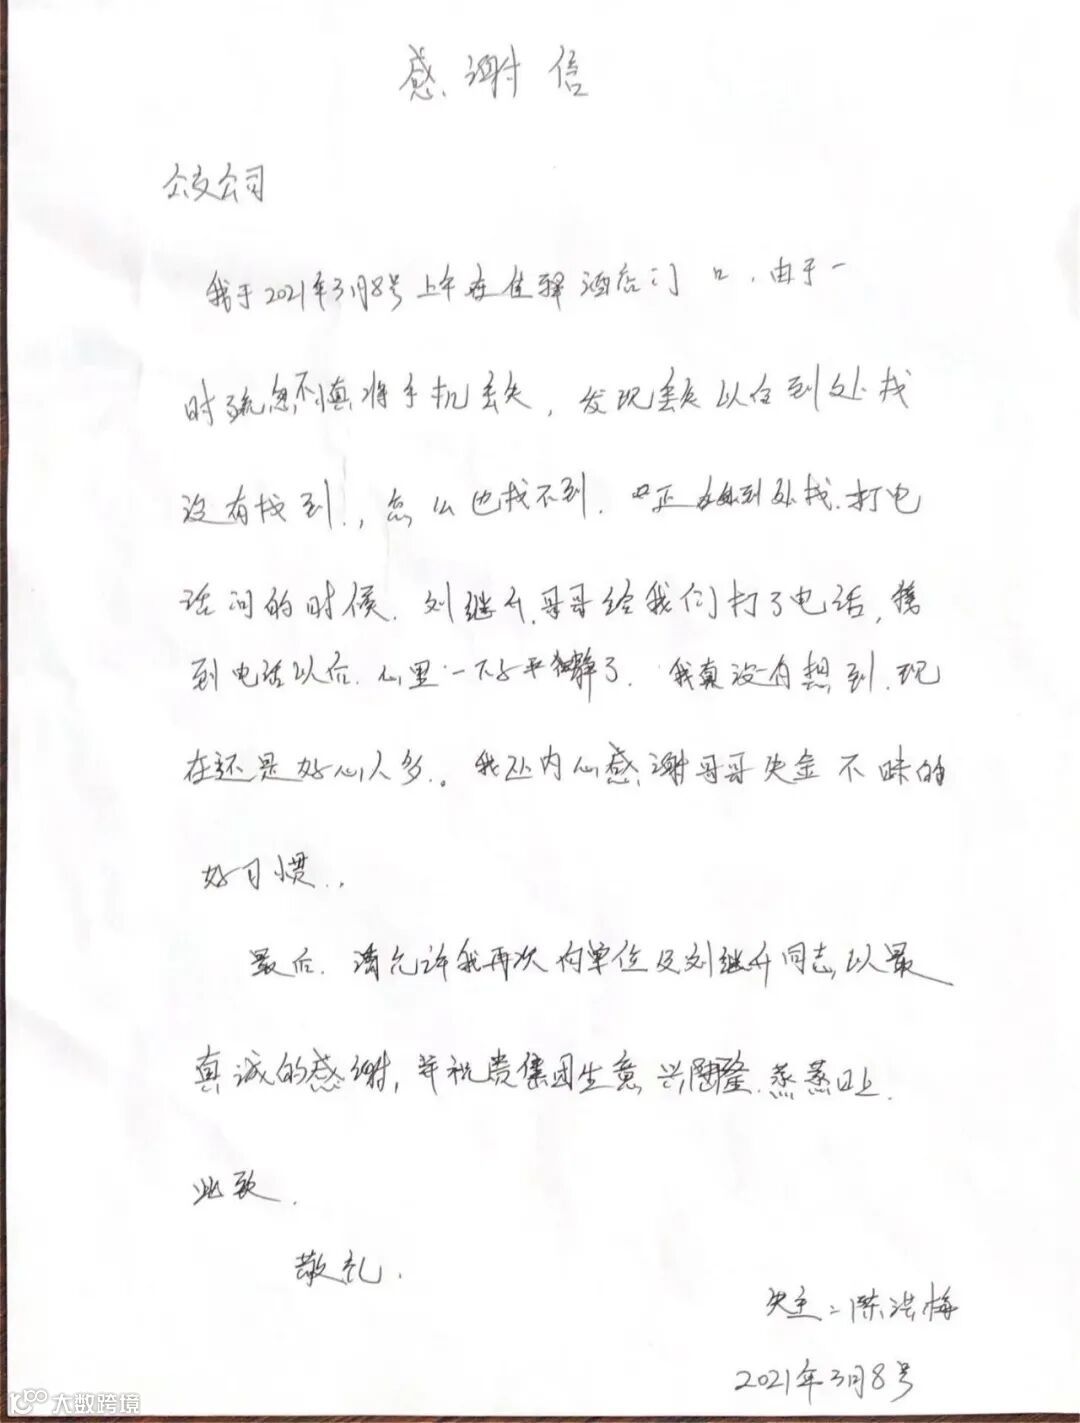 感谢信
公交公司
我于2021年3月8号上午在佳驿酒店门口,由于一
时疏忽不慎将手机丢失,发现丢失以后到处找
没有找到.,怎么也找不到.正到处找.打电
话问的时候.刘继升.哥哥给我们打了电话,接
到电话以后.心里一下子平静了.我真没有想到.现
在还是好心人多.。我处内心感谢哥哥失金不昧的
好习惯..
最后.请允许我再次向单位及刘继升同志,以最
真诚的感谢,并祝贵集团生意兴隆.蒸蒸日上.
此致.
敬礼.
失主:陈洪梅
2021年3月8号
大数跨境